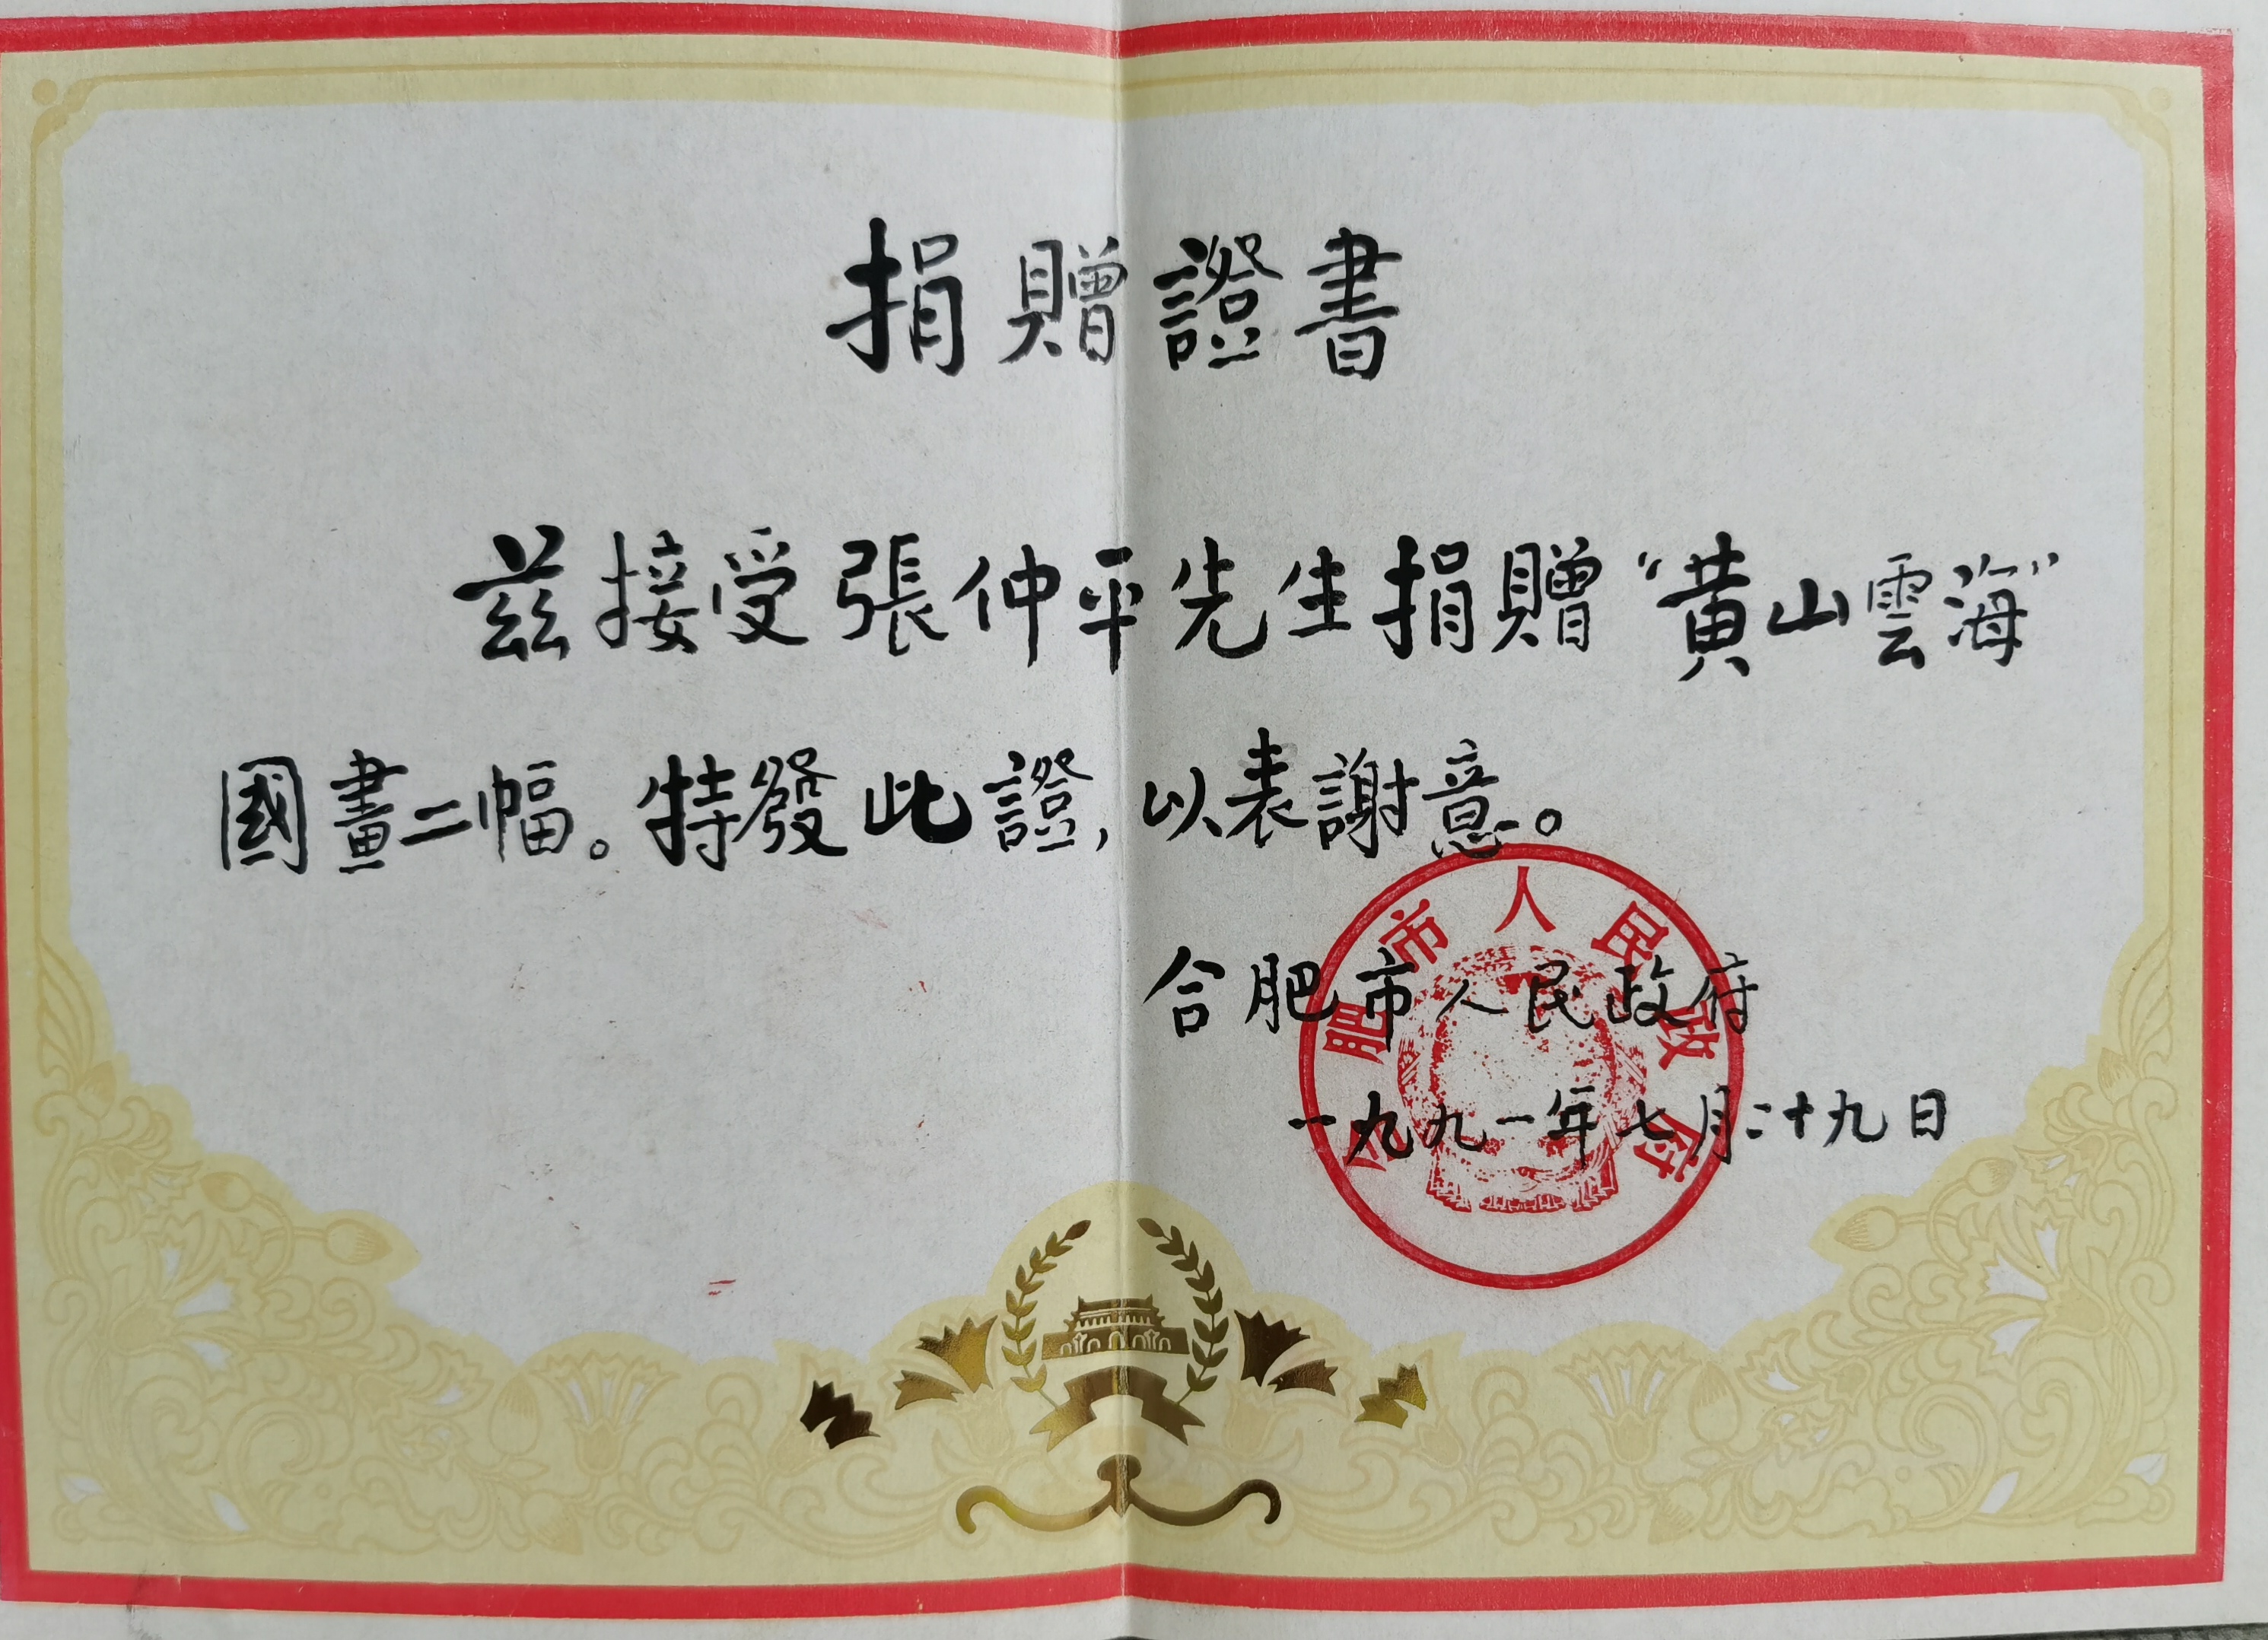 捐贈證書
茲接受張仲平先生捐贈“黄山雲海”
國畫二幅。特發此證，以表謝意。
合肥市人民政府
一九九一年七月二十九日
合肥市人民政府